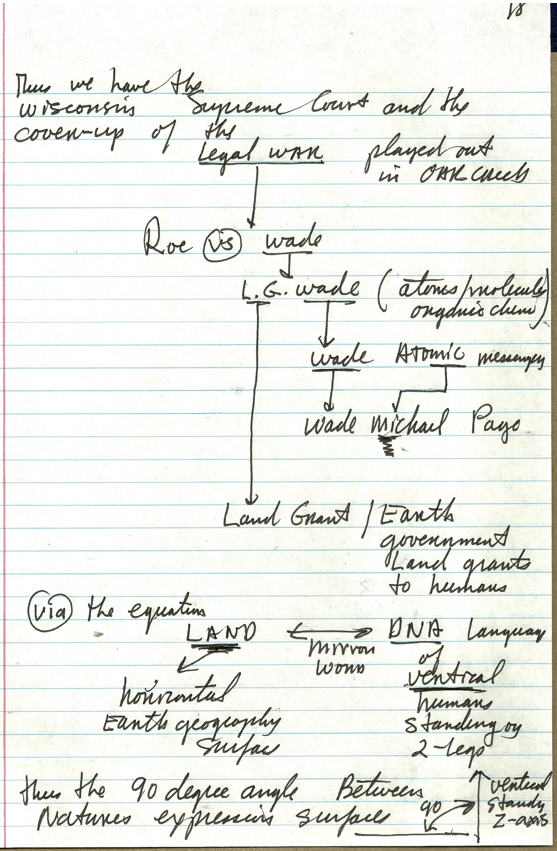 18
Thus we have the
Wisconsin Supreme Court and the
cover-up of the
Legal WAR played out
in OAK Creek
Roe vs wade
L.G. wade (atoms/molecules
organic chem)
wade Atomic messengers
wade Michael Page
Land Grant / Earth
government
Land grants
to humans
via the equation
LAND DNA Language
mirror
word
of
vertical
horizontal
humans
Earth geography
standing on
surface
2-legs
thus the 90 degree angle Between
Natures expression surfaces
90
vertical
standing
Z-axis